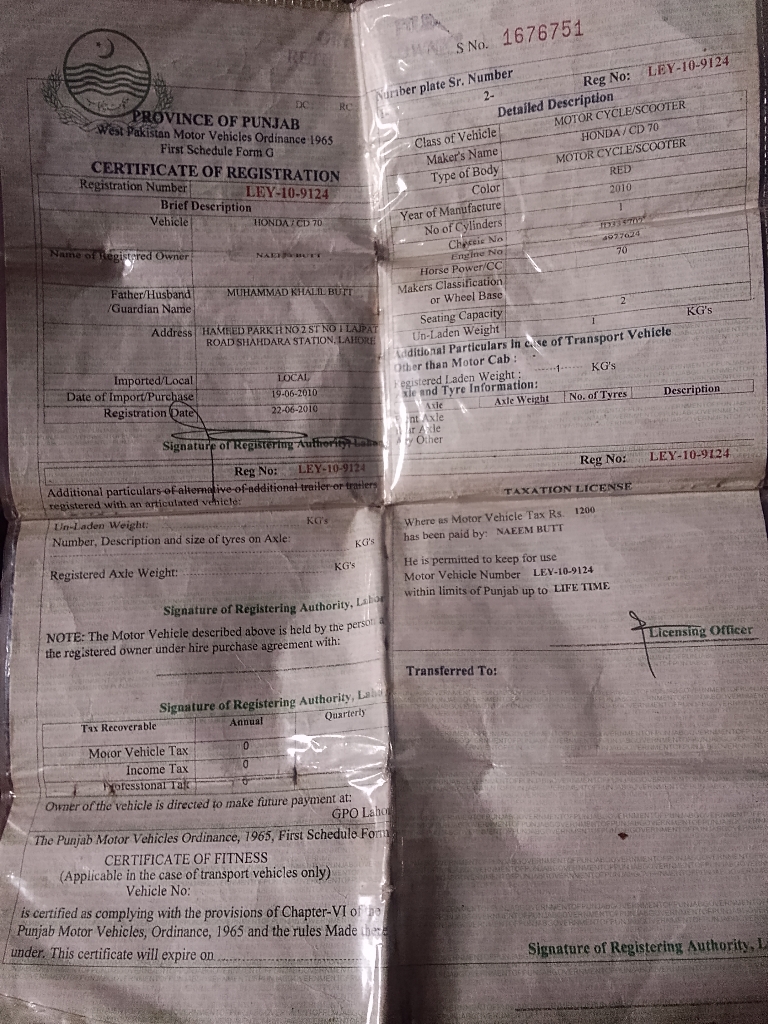 PROVINCE OF PUNJAB
West Pakistan Motor Vehicles Ordinance 1965
First Schedule Form G
CERTIFICATE OF REGISTRATION
Registration Number LEY-10-9124
Brief Description
Vehicle HONDA / CD 70
Name of Registered Owner
Father/Husband /Guardian Name MUHAMMAD KHALIL BUTT
Address HAMEED PARK H NO 2 ST NO 1 LAJPAT
ROAD SHAHDARA STATION, LAHORE
Imported/Local LOCAL
Date of Import/Purchase 19-06-2010
Registration Date 22-06-2010
Signature of Registering Authority, Laho
Reg No: LEY-10-9124
Additional particulars of alternative of additional trailer or trailers
registered with an articulated vehicle:
Un-Laden Weight: KG's
Number, Description and size of tyres on Axle: KG's
Registered Axle Weight: KG's
Signature of Registering Authority, Lahor
NOTE: The Motor Vehicle described above is held by the person a
the registered owner under hire purchase agreement with:
Signature of Registering Authority, Laho
Tax Recoverable Annual Quarterly
Motor Vehicle Tax 0
Income Tax 0
Professional Tax 0
Owner of the vehicle is directed to make future payment at:
GPO Lahor
The Punjab Motor Vehicles Ordinance, 1965, First Schedule Form
CERTIFICATE OF FITNESS
(Applicable in the case of transport vehicles only)
Vehicle No:
is certified as complying with the provisions of Chapter-VI of the
Punjab Motor Vehicles, Ordinance, 1965 and the rules Made there
under. This certificate will expire on
S No. 1676751
Number plate Sr. Number
2-
Reg No: LEY-10-9124
Detailed Description
Class of Vehicle MOTOR CYCLE/SCOOTER
Maker's Name HONDA / CD 70
Type of Body MOTOR CYCLE/SCOOTER
Color RED
Year of Manufacture 2010
No of Cylinders 1
Chassis No
Engine No
Horse Power/CC 70
Makers Classification
or Wheel Base
Seating Capacity 2
Un-Laden Weight 1 KG's
Additional Particulars In case of Transport Vehicle
Other than Motor Cab :
Registered Laden Weight : 1 KG's
Axle and Tyre Information:
Axle Axle Weight No. of Tyres Description
Axle
Axle
Other
Reg No: LEY-10-9124
TAXATION LICENSE
Where as Motor Vehicle Tax Rs. 1200
has been paid by: NAEEM BUTT
He is permitted to keep for use
Motor Vehicle Number LEY-10-9124
within limits of Punjab up to LIFE TIME
Licensing Officer
Transferred To:
Signature of Registering Authority, L